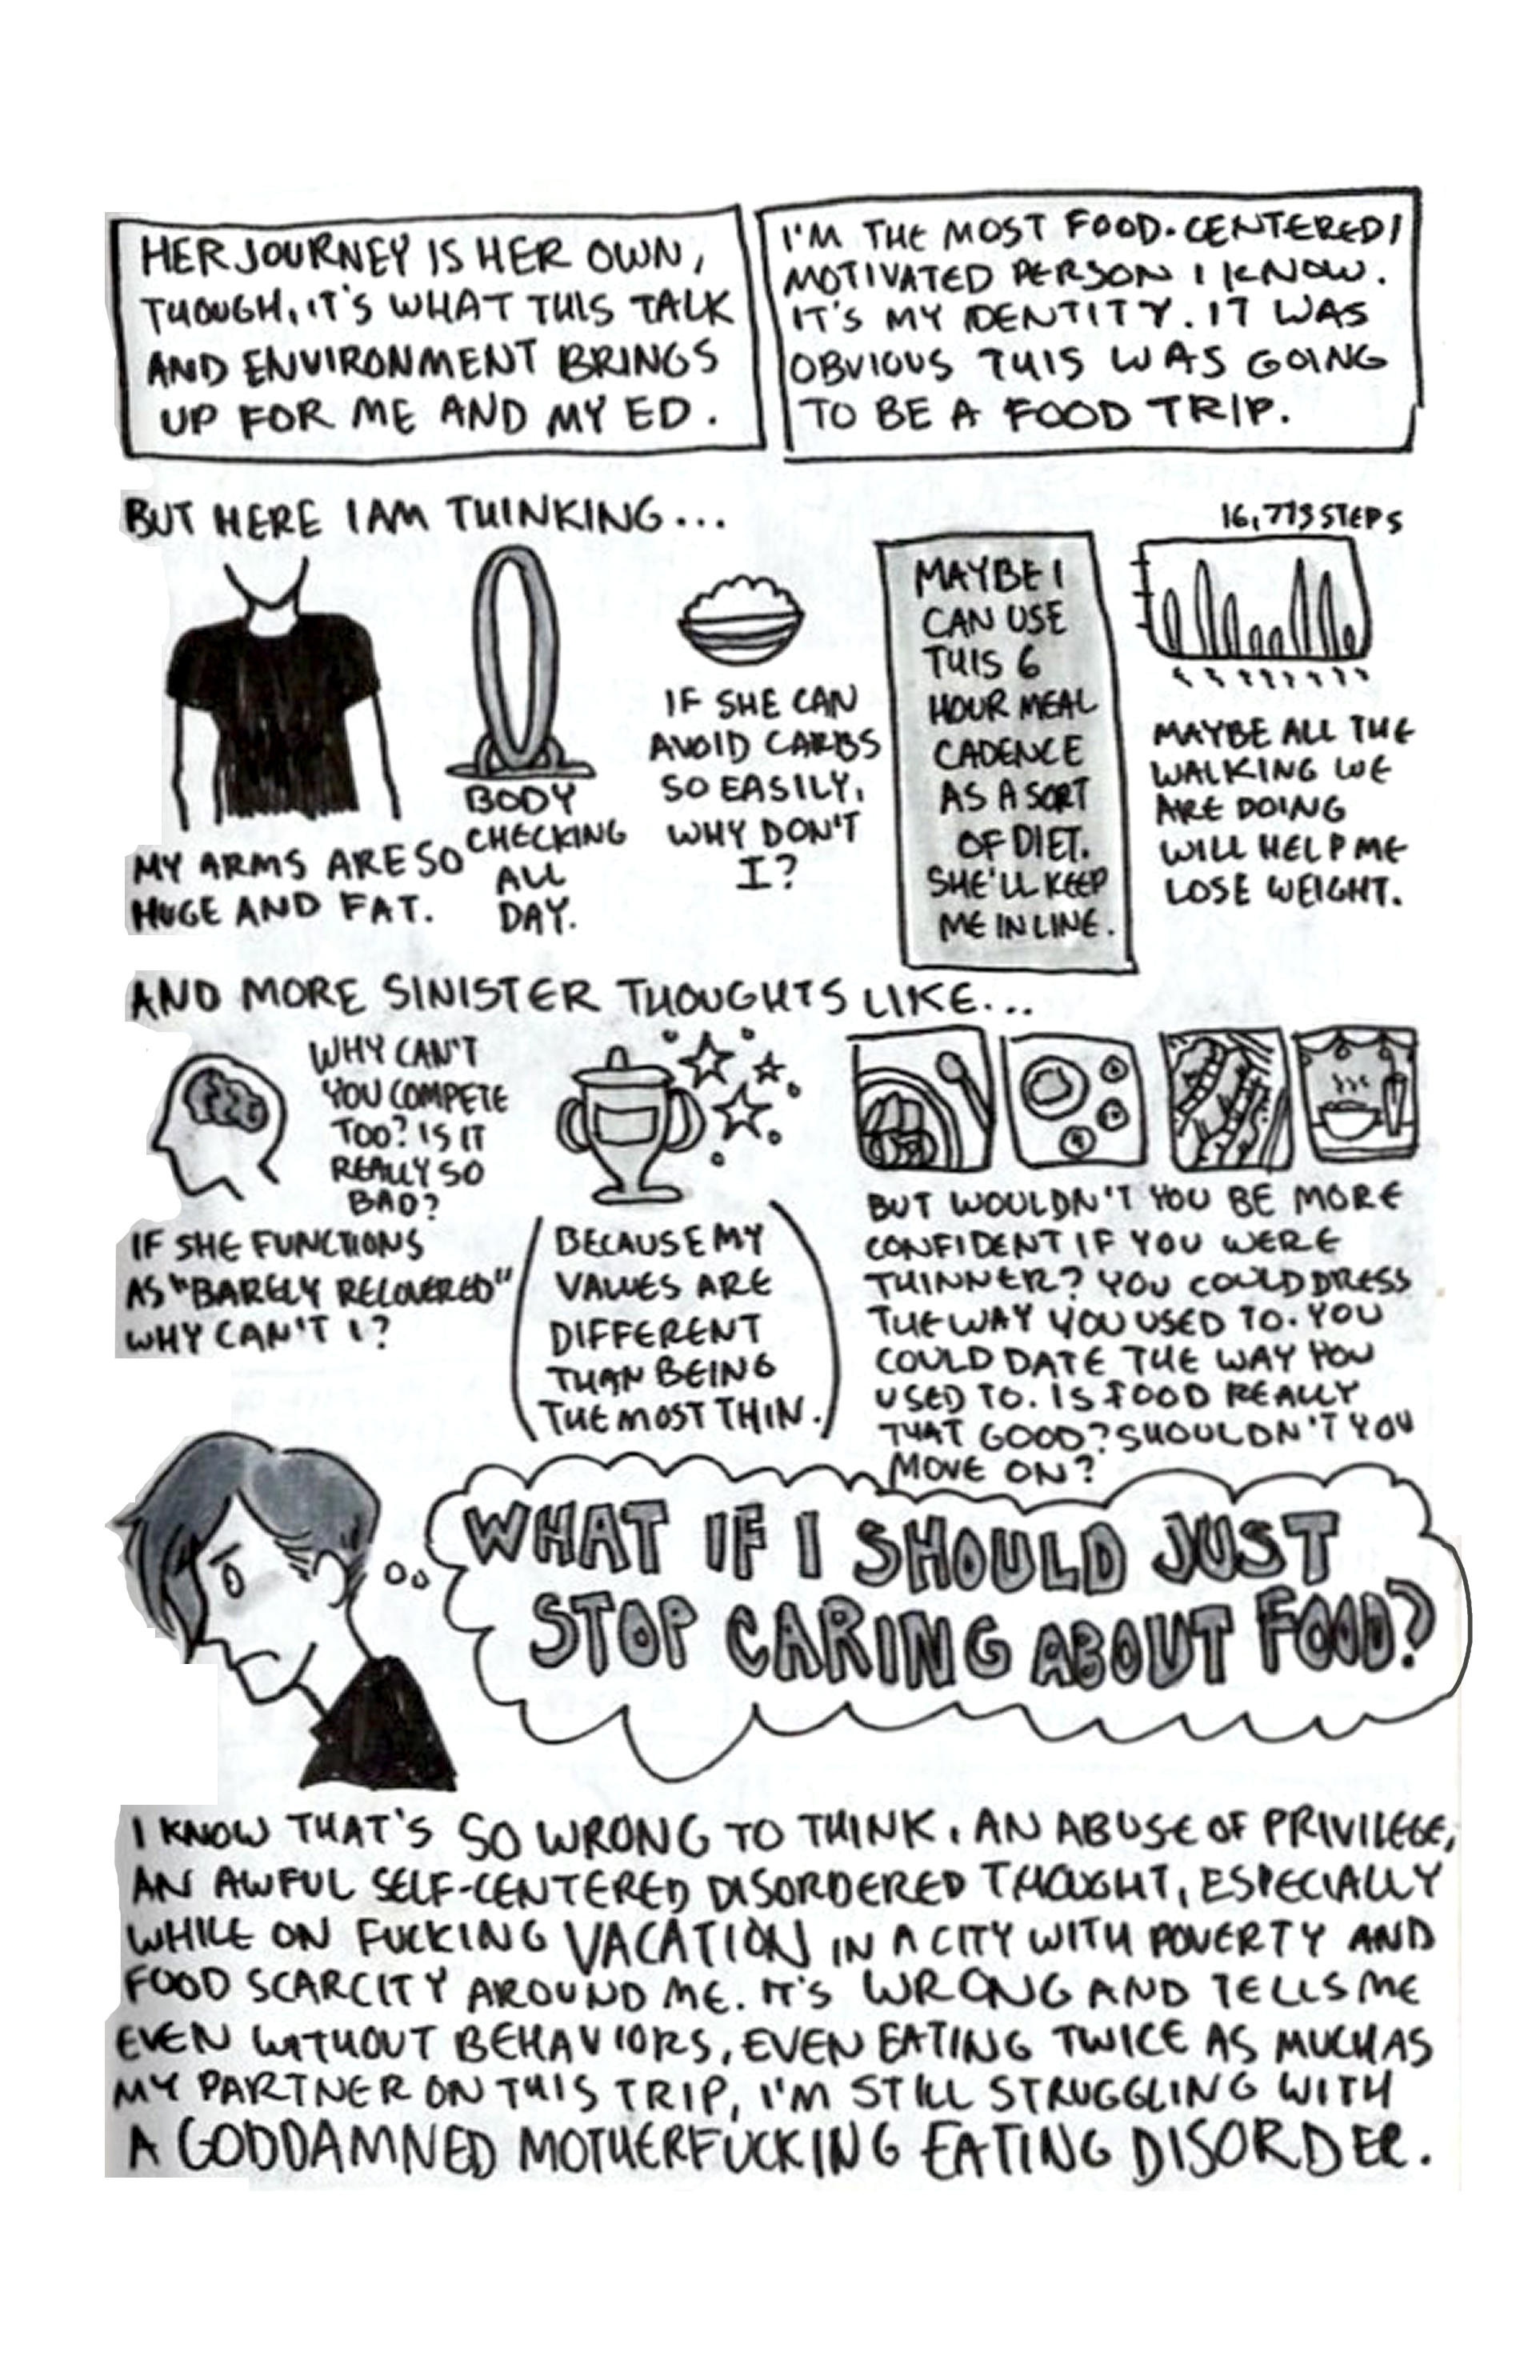 HER JOURNEY IS HER OWN,
THOUGH, IT'S WHAT THIS TALK
AND ENVIRONMENT BRINGS
UP FOR ME AND MY ED.
I'M THE MOST FOOD-CENTERED/
MOTIVATED PERSON I KNOW.
IT'S MY IDENTITY. IT WAS
OBVIOUS THIS WAS GOING
TO BE A FOOD TRIP.
BUT HERE I AM THINKING...
MY ARMS ARE SO
HUGE AND FAT.
BODY
CHECKING
ALL
DAY.
IF SHE CAN
AVOID CARBS
SO EASILY,
WHY DON'T
I?
MAYBE I
CAN USE
THIS 6
HOUR MEAL
CADENCE
AS A SORT
OF DIET.
SHE'LL KEEP
ME IN LINE.
16,773 STEPS
MAYBE ALL THE
WALKING WE
ARE DOING
WILL HELP ME
LOSE WEIGHT.
AND MORE SINISTER THOUGHTS LIKE...
WHY CAN'T
YOU COMPETE
TOO? IS IT
REALLY SO
BAD?
IF SHE FUNCTIONS
AS "BARELY RECOVERED"
WHY CAN'T I?
(BECAUSE MY
VALUES ARE
DIFFERENT
THAN BEING
THE MOST THIN.)
BUT WOULDN'T YOU BE MORE
CONFIDENT IF YOU WERE
THINNER? YOU COULD DRESS
THE WAY YOU USED TO. YOU
COULD DATE THE WAY YOU
USED TO. IS FOOD REALLY
THAT GOOD? SHOULDN'T YOU
MOVE ON?
WHAT IF I SHOULD JUST
STOP CARING ABOUT FOOD?
I KNOW THAT'S SO WRONG TO THINK. AN ABUSE OF PRIVILEGE,
AN AWFUL SELF-CENTERED DISORDERED THOUGHT, ESPECIALLY
WHILE ON FUCKING VACATION IN A CITY WITH POVERTY AND
FOOD SCARCITY AROUND ME. IT'S WRONG AND TELLS ME
EVEN WITHOUT BEHAVIORS, EVEN EATING TWICE AS MUCH AS
MY PARTNER ON THIS TRIP, I'M STILL STRUGGLING WITH
A GODDAMNED MOTHERFUCKING EATING DISORDER.